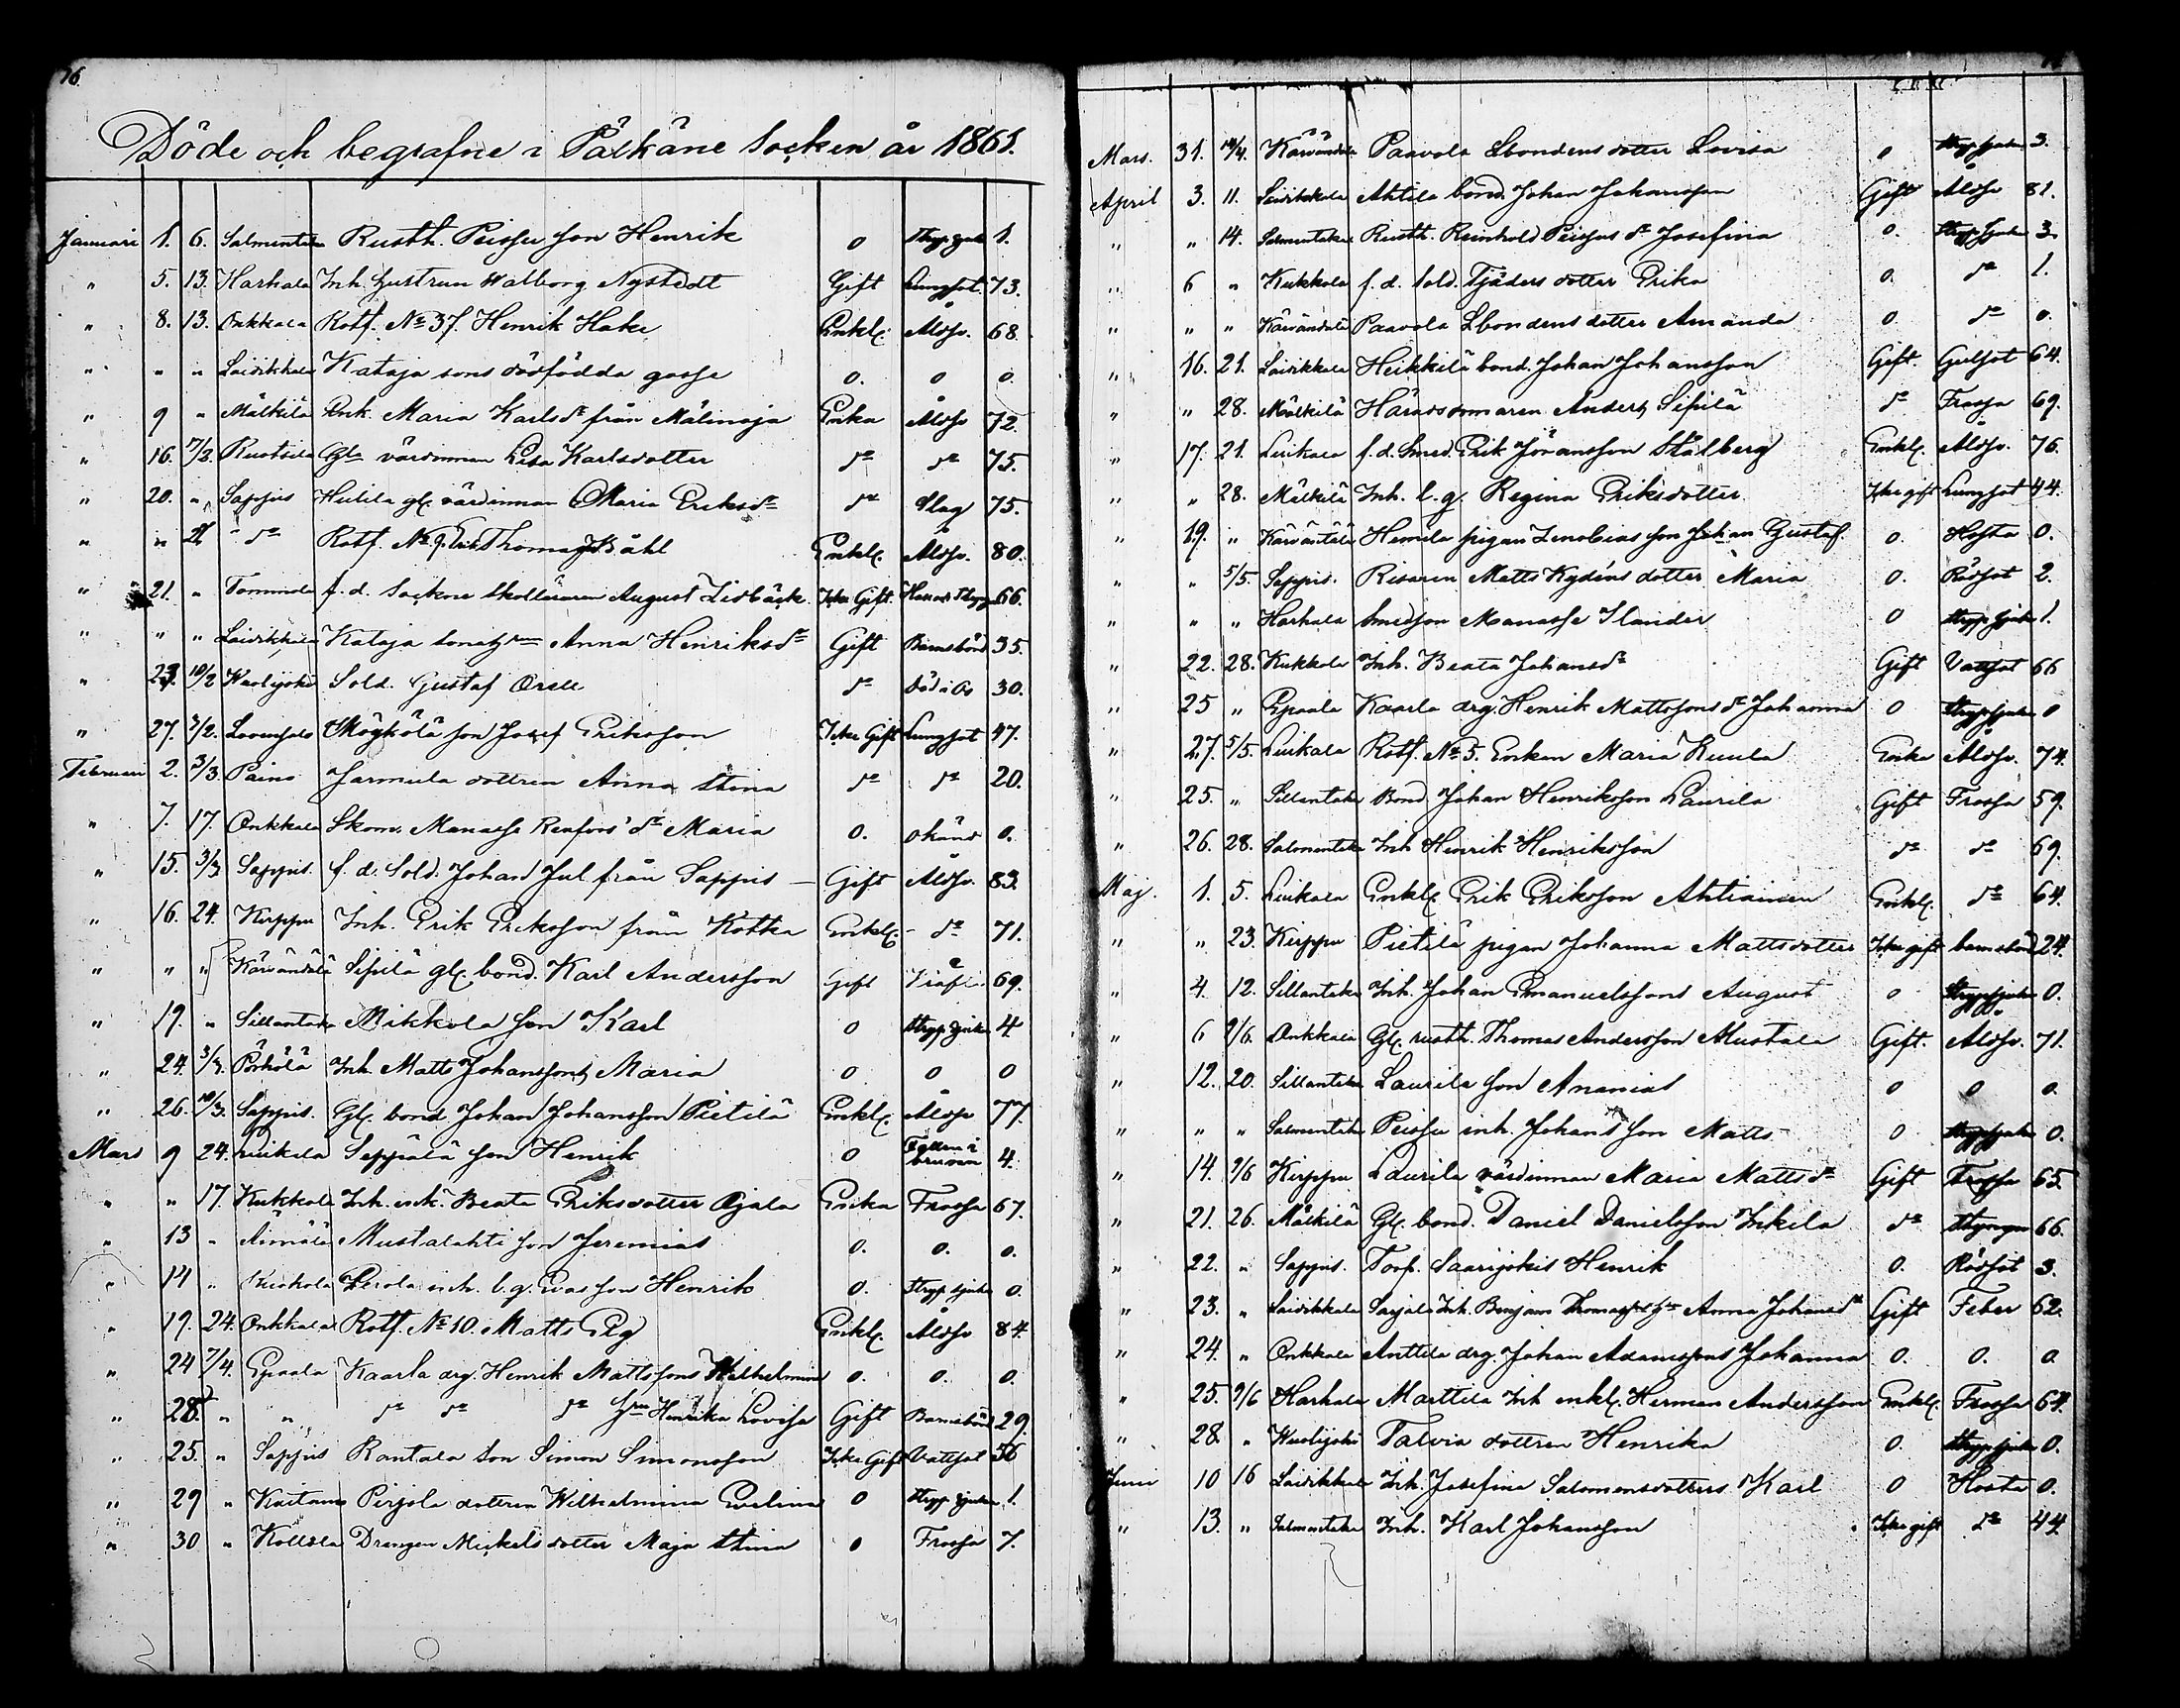 76.
Döde och begrafne i Pälkäne Socken år 1861.
Januari 1. 6. Salmentaka Rusth. Peissu son Henrik 0 Strypsjuka 1.
" 5. 13. Harhala Inh. hustrun Walborg Nystedt Gift Lungsot. 73.
" 8. 13. Onkkala Rotf. No 37. Henrik Hake Enkl. Åldr. 68.
" " " Laidikkala Kataja sons dödfödda gosse 0. 0 0.
" 9 " Mälkilä Enk. Maria Karlsdr från Mälinoja Enka Åldr 72.
" 16. 7/3. Ruotsila Gla värdinnan Lisa Karlsdotter do do 75.
" 20. " Sappis Heikila gl. värdinnan Maria Eriksdr do Slag 75.
" " 21 " do Rotf. No 9. Erik Thomas Ståhl Enkl. Åldr. 80.
" 21. " Tommola f. d. Sockne Skolläraren August Lidbäck Icke Gift. 66.
" " " Laidikkala Kataja sonas hru Anna Henriksdr Gift Barnsbörd 35.
" 23. 10/2 Wuolijoki Sold. Gustaf Orell do 30.
" 27. 3/2. son Josef Eriksson Icke Gift Lungsot 47.
Februari 2. 3/3. Paino Jarmula dottren Anna Stina do do 20.
" 7. 17. Onkkala Skom. Manasse Renfors' dr Maria 0. okänd 0.
" 15. 3/3. Sappis. f. d. Sold. Johan Jul från Sappis — Gift Åldr. 83.
" 16. 24. Kirppu Inh. Erik Eriksson från Kottka Enkl. do 71.
" " " Kärvändälä Sipilä gl. bond. Karl Andersson Gift 69.
" 19. " Sillantaka Mikkola son Karl 0 Strypsjuka 4
" 24. 3/3. Pörhölä Inh. Matts Johanssons Maria 0 0 0
" 26. 10/3. Sappis. Gl. bond. Johan Johansson Pietilä Enkl. Åldr 77.
Mars 9 24. Luikala Seppälä son Henrik 0 Fallen i brunnen 4.
" " 17. Kukkola Inh. enk. Beata Eriksdotter Ojala Enka Frossa 67.
" 13 " Äimälä Mustalahti son Jeremias 0. 0. 0.
" 14 " Kukkola Perola inh. l. g. Evas son Henrik 0. Strypsjuka 0.
" 19. 24. Onkkala Rotf. No 10. Matts Elg Enkl. Åldr 84.
" 24 7/4. Epaala Kaarla drg. Henrik Mattssons Wilhelmina 0. 0. 0.
" 28. " " do do do hru Henrika Lovisa Gift Barnsbörd 29.
" 25. " Sappis Rantala son Simon Simonsson Icke Gift Vattsot 56
" 29 " Kaitamo Pirjola dottren Wilhelmina Evelina 0 Strypsjuka 1.
" 30 " Kollola Drengen Mickels dotter Maja Stina 0 Frossa 7.
Mars. 31. 14/4. Kärvändälä Paavola Lbondens dotter Lovisa 0 Strypsjuka 3.
April 3. 11. Laidikkala Ahtila bond. Johan Johansson Gift Åldr 81.
" " 14. Salmentaka Rusth. Reinhold Peissus dr Josefina 0. Strypsjuka 3.
" 6 " Kukkola f. d. sold. Tjäders dotter Erika 0. do 1.
" " " Kärvändälä Paavola Lbondens dotter Amanda 0. do 0.
" 16. 21. Laidikkala Heikkilä bond. Johan Johansson Gift. Gulsot 64.
" " 28. Mälkilä Häradsdomaren Anders Sipilä do Frossa 69.
" 17. 21. Luikala f. d. Smed. Erik Jöransson Stålberg Enkl. Åldr. 76.
" " 28. Mälkilä Inh. l. g. Regina Eriksdotter Icke gift Lungsot 44.
" 19. " Kärväntälä Hemila pigan Zenobias son Johan Gustaf 0. Hosta 0.
" " 5/5. Sappis. Risaren Matts Kydéns dotter Maria 0. Rödsot 2.
" " " Harhala Smedson Manasse Ilander 0 Strypsjuka 1.
" 22. 28. Kukkola Inh. Beata Johansdr Gift Vattsot 66
" 25 " Epaala Kaarla drg. Henrik Mattssons dr Johanna 0 Strypsjuka 0
" 27. 5/5. Luikala Rotf. No 5. Enkan Maria Kuula Enka Åldr. 74.
" 25. " Sillantaka Bond Johan Henriksson Laurila Gift Frossa 59.
" 26. 28. Salmentaka Inh Henrik Henriksson do do 69.
Maj. 1. 5. Luikala Enkl. Erik Eriksson Ahtiainen Enkl. do 64.
" " 23. Kirppu Pietilä pigan Johanna Mattsdotter Icke gift barnsbörd 24.
" 4. 12. Sillantaka Inh. Johan Emanuelssons August 0 Strypsjuka 0.
" 6 9/6. Onkkala Gl. rusth. Thomas Andersson Mustala Gift. Åldr. 71.
" 12. 20. Sillantaka Laurila son Ananias 0 0 0.
" " " Salmentaka Peissu inh. Johans son Matts 0 Strypsjuka 0.
" 14. 9/6 Kirppu Laurila värdinnan Maria Mattsdr Gift Frossa 65
" 21. 26. Mälkilä Gl. bond. Daniel Danielsson Inkila do Styngen 66.
" 22. " Sappis. Torp. Saarijokis Henrik 0. Rödsot 3.
" 23. " Laidikkala Sarjala Inh. Benjam Thomass hru Anna Johansdr Gift Feber 62.
" 24. " Onkkala Anttila drg. Johan Adamssons Johanna 0. 0. 0.
" 25. 9/6 Harhala Marttila Inh enkl. Herman Andersson Enkl. Frossa 64.
" 28. " Wuolijoki Talvia dottren Henrika 0. Strypsjuka 0.
Juni 10 16 Laidikkala Inh. Josefina Salomonsdotters Karl 0 Hosta 0.
" 13. " Salmentaka Inh. Karl Johansson Icke gift do 44.